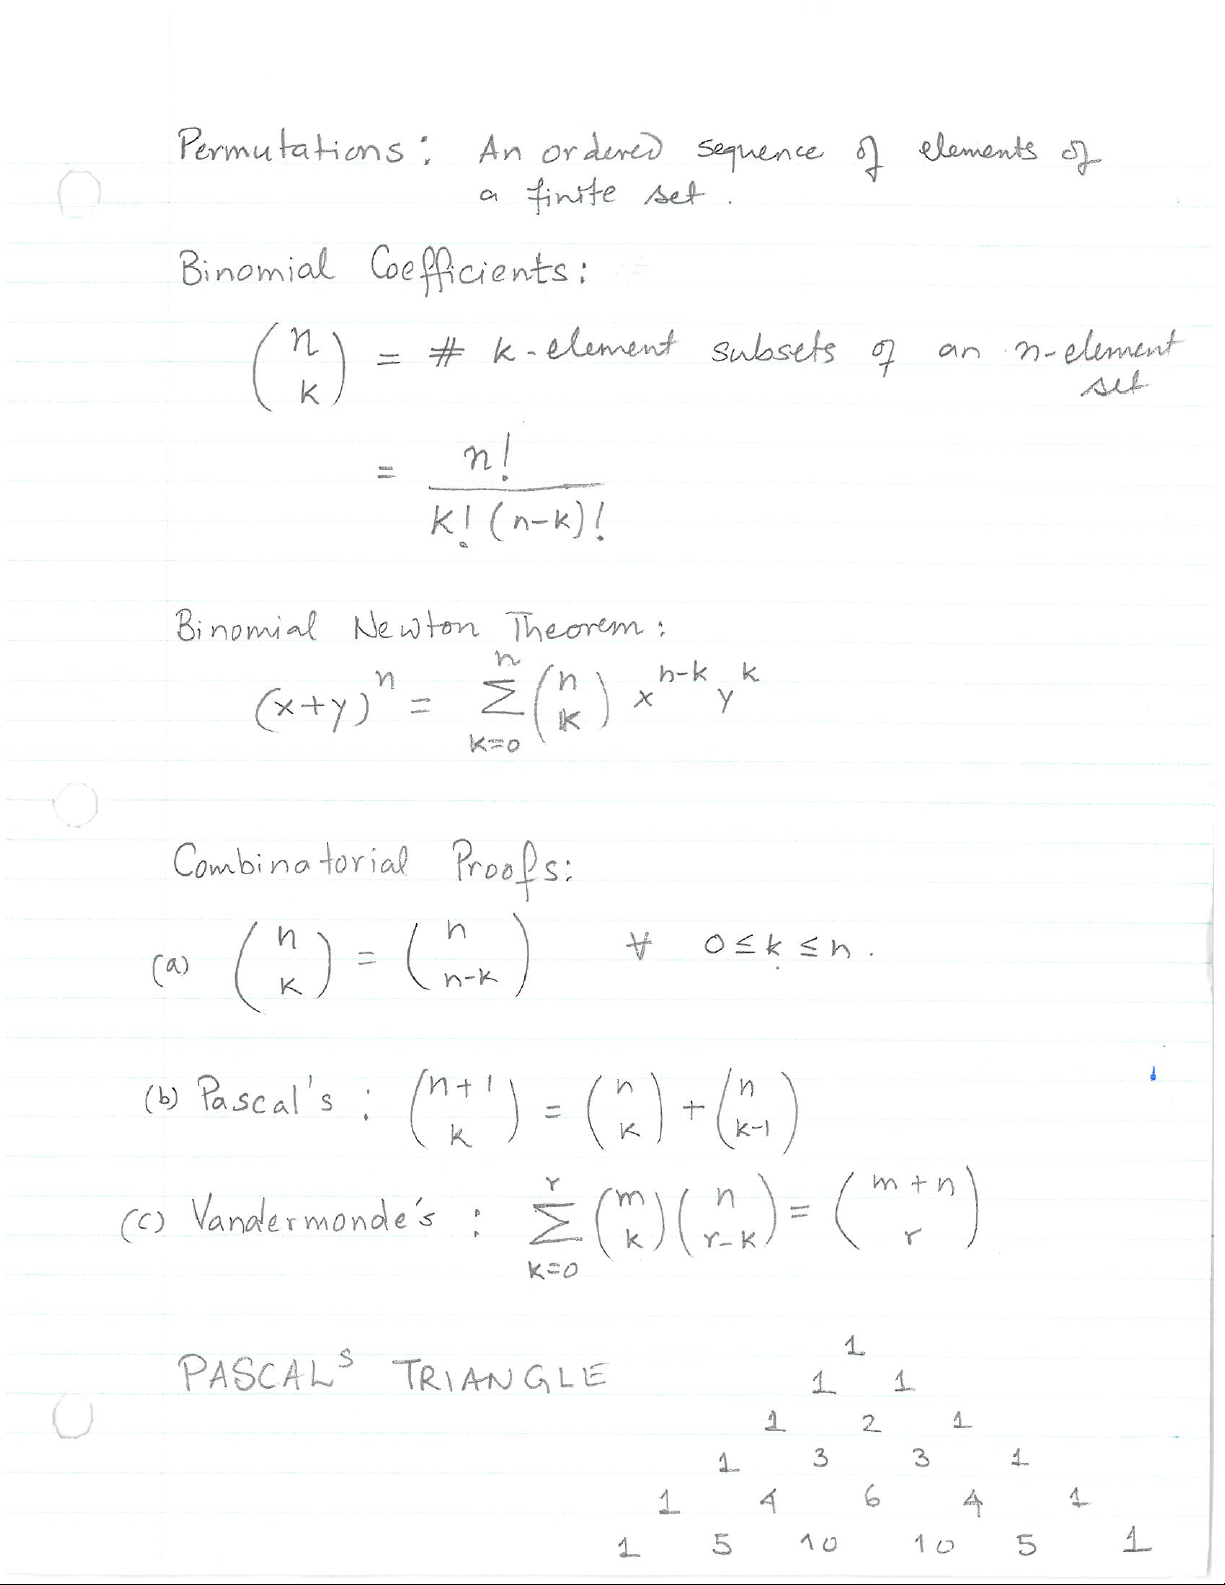 Permutations: An ordered sequence of elements of
a finite set.
Binomial Coefficients:
(n k) = # k-element subsets of an n-element
set
= n! / k!(n-k)!
Binomial Newton Theorem:
(x+y)^n = ∑_{k=0}^{n} (n k) x^{n-k} y^k
Combinatorial Proofs:
(a) (n k) = (n n-k) ∀ 0≤k≤n.
(b) Pascal's : (n+1 k) = (n k) + (n k-1)
(c) Vandermonde's : ∑_{k=0}^{r} (m k)(n r-k) = (m+n r)
PASCALS TRIANGLE
1
1 1
1 2 1
1 3 3 1
1 4 6 4 1
1 5 10 10 5 1